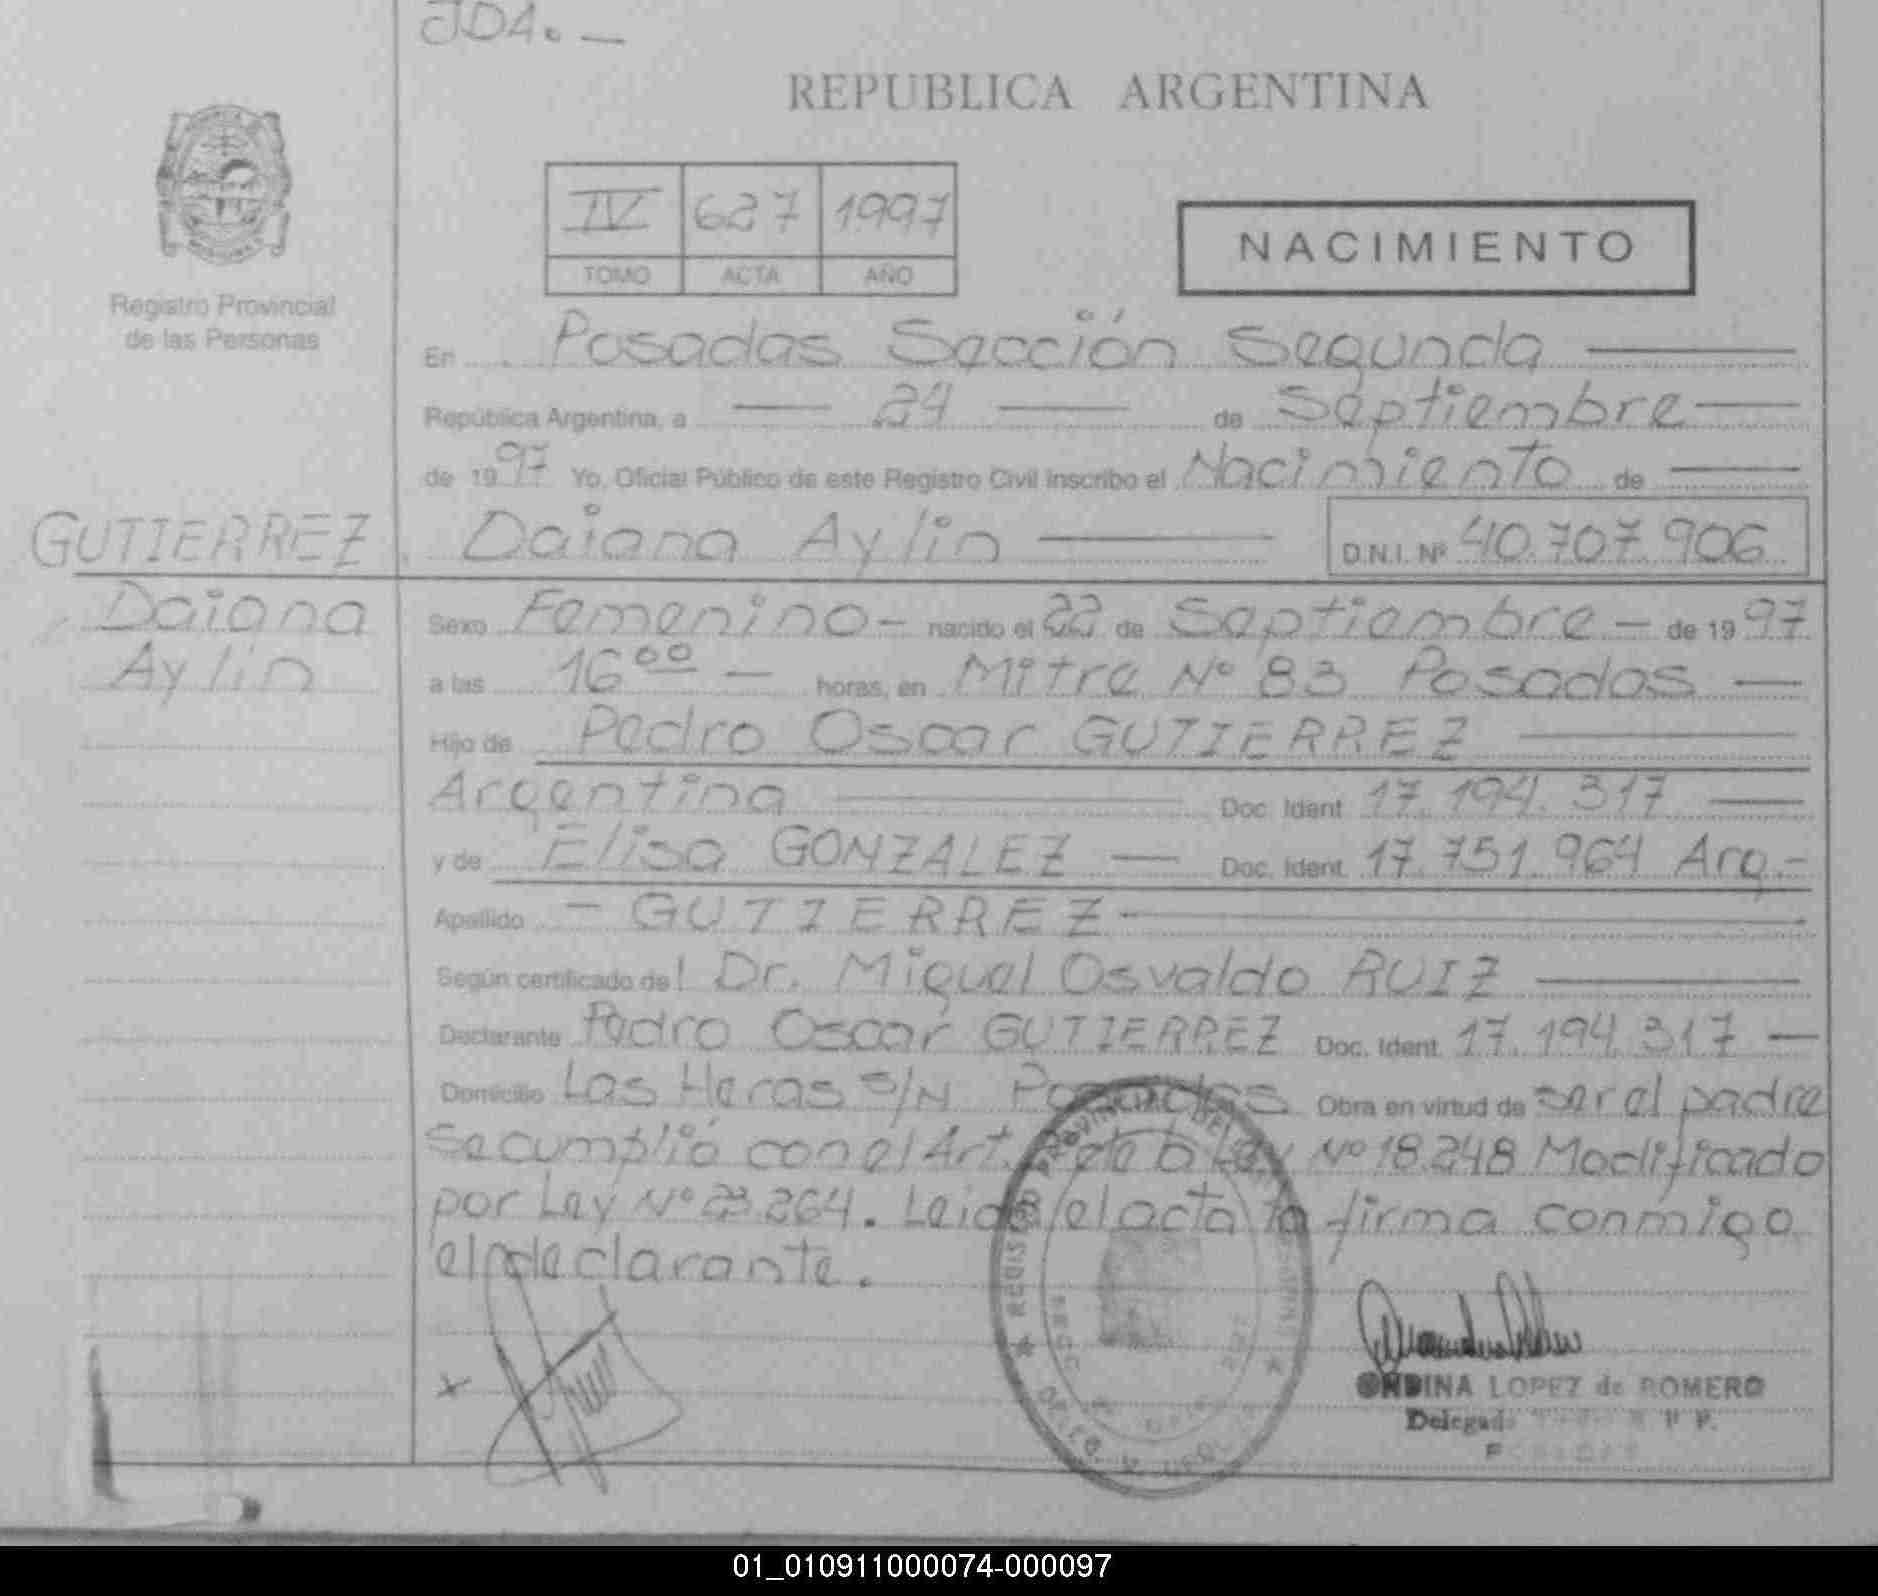 JDA. —
REPUBLICA ARGENTINA
IV 627 1997
TOMO ACTA AÑO
NACIMIENTO
Registro Provincial
de las Personas
En Posadas Sección Segunda
República Argentina, a 24 de Septiembre
de 1997 Yo, Oficial Público de este Registro Civil inscribo el Nacimiento de
GUTIERREZ Daiana Aylin D.N.I. Nº 40.707.906
Daiana
Aylin
Sexo Femenino - nacido el 22 de Septiembre - de 1997
a las 16⁰⁰ — horas, en Mitre Nº 83 Posadas —
Hijo de Pedro Oscar GUTIERREZ
Argentina Doc. Ident. 17.194.317
y de Elisa GONZALEZ — Doc. Ident. 17.751.964 Arg.-
Apellido - GUTIERREZ
Según certificado del Dr. Miguel Osvaldo RUIZ
Declarante Pedro Oscar GUTIERREZ Doc. Ident. 17.194.317 —
Domicilio Las Heras S/N Posadas Obra en virtud de ser el padre
Se cumplió con el Art. de la Ley Nº 18.248 Modificado
por Ley Nº 23.264. Leida el acta la firma conmigo
el declarante.
ONDINA LOPEZ de ROMERO
01_010911000074-000097